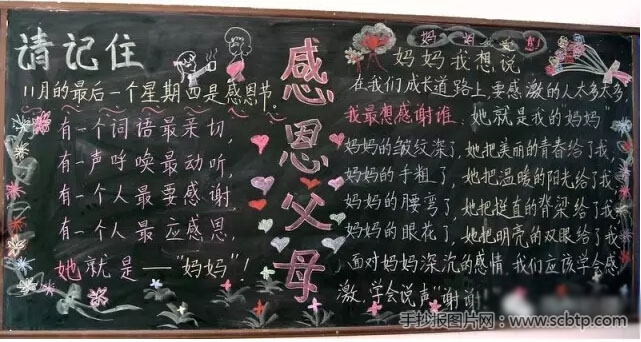 请记住
11月的最后一个星期四是感恩节。
有一个词语最亲切,
有一声呼唤最动听,
有一个人最要感谢,
有一个人最应感恩,
她就是——"妈妈"!
感恩父母
妈妈
您
妈妈我想说
在我们成长道路上,要感激的人太多太多
我最想感谢谁、她就是我的"妈妈"
妈妈的皱纹深了,她把美丽的青春给了我,
妈妈的手粗了,她把温暖的阳光给了我,
妈妈的腰弯了,她把挺直的脊梁给了我,
妈妈的眼花了,她把明亮的双眼给了我,
面对妈妈深沉的感情,我们应该学会感
激,学会说声"谢谢"
手抄报图片网：www.scbtp.com